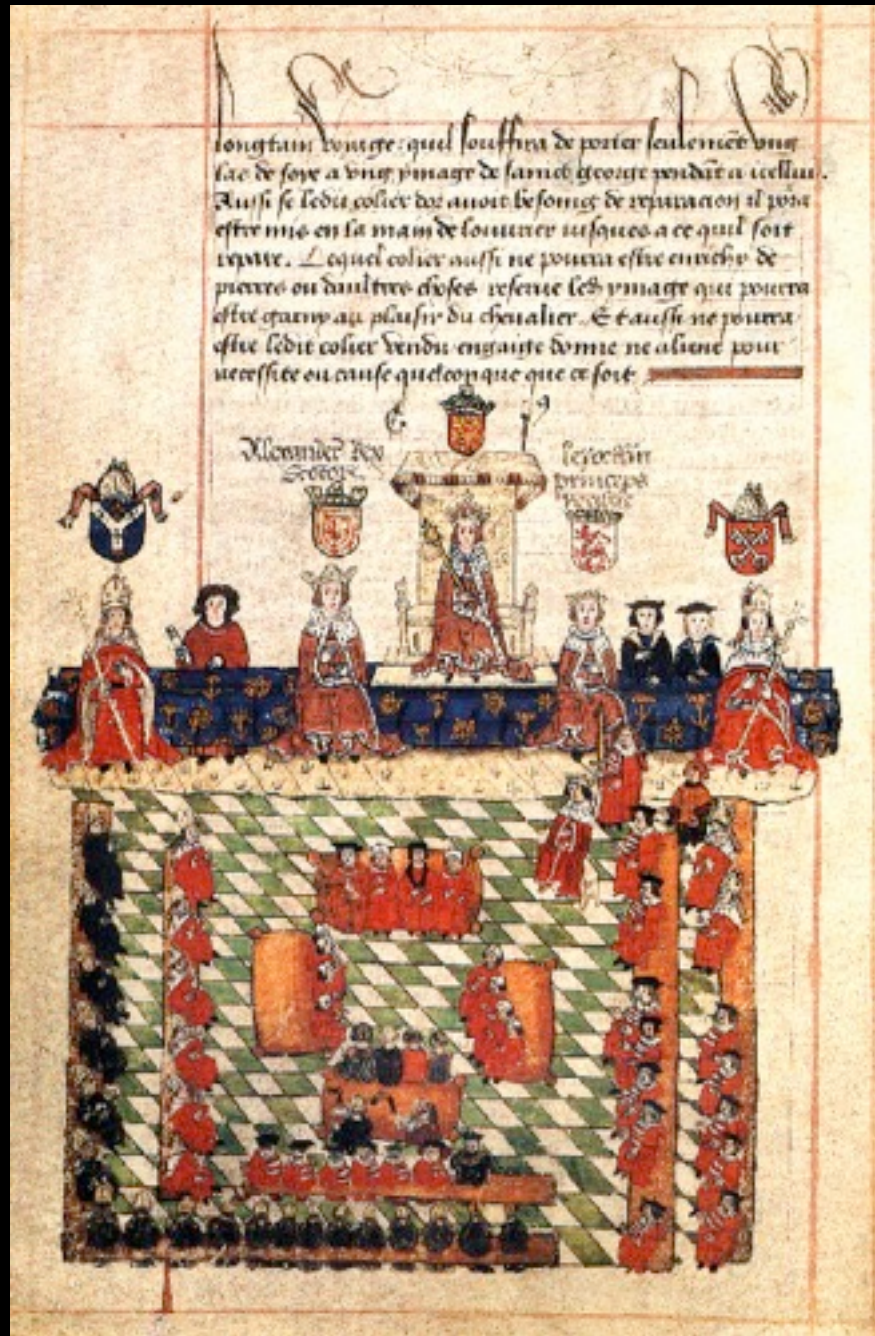 longtain voiage: quil souffira de porter seulemēt vng
las de soye a vng ymage de sainct george pendāt a icellui.
Aussi se ledit colier dor auoit besoing de reparacion il pora
estre mis en la main de louurier iusques a ce quil soit
repare. Lequel colier aussi ne pourra estre enrichy de
pierres ou daultres choses reserue led ymage qui pourra
estre garny au plaisir du cheualier. Et aussi ne pourra
estre ledit colier vendu engaige donne ne aliene pour
necessite ou cause quelconque que ce soit
Alexander Rex
princeps